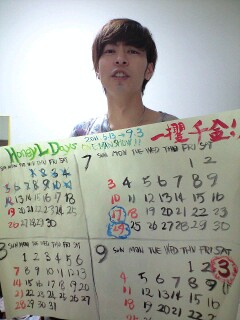 Honey L Days 2011.5.13→9.3 一攫千金!
ONE MAN SHOW!!
SUN MON TUE WED THU FRI SAT
1 2 3 4
12 13 14 15 16 17 18
19 20 21 22 23 24 25
26 27 28 29 30
7 SUN MON TUE WED THU FRI SAT
1 2
3 4 5 6 7 8 9
10 11 12 13 14 15 16
17 18 19 20 21 22 23
24 25 26 27 28 29 30
SUN MON TUE WED THU FRI SAT
1 2 3 4 5 6
7 8 9 10 11 12 13
14 15 16 17 18 19 20
21 22 23 24 25 26 27
9 SUN MON TUE WED THU FRI SAT
1 2 3
4 5 6 7 8 9 10
11 12 13 14 15 16 17